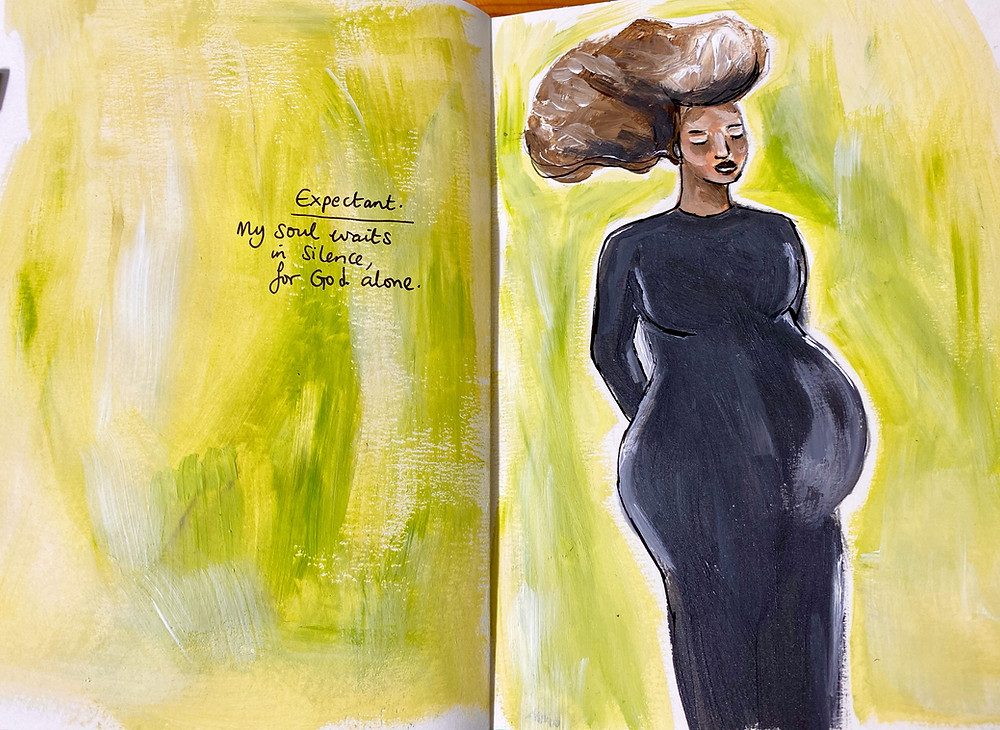 Expectant.
My soul waits
in silence,
for God alone.